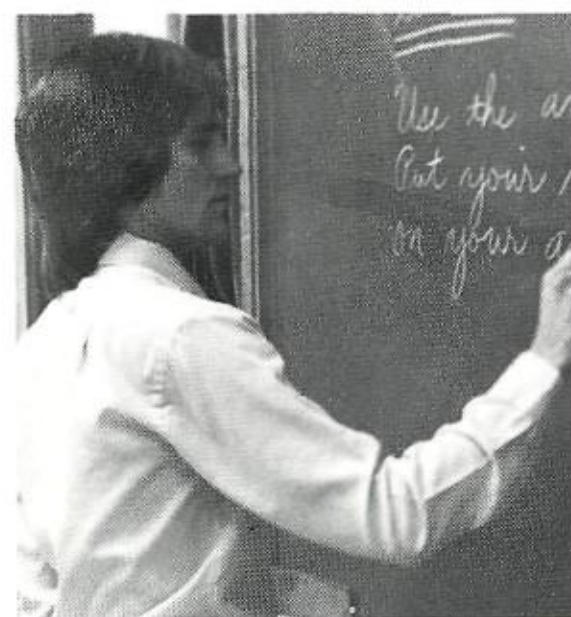 Use the
Put your
on your